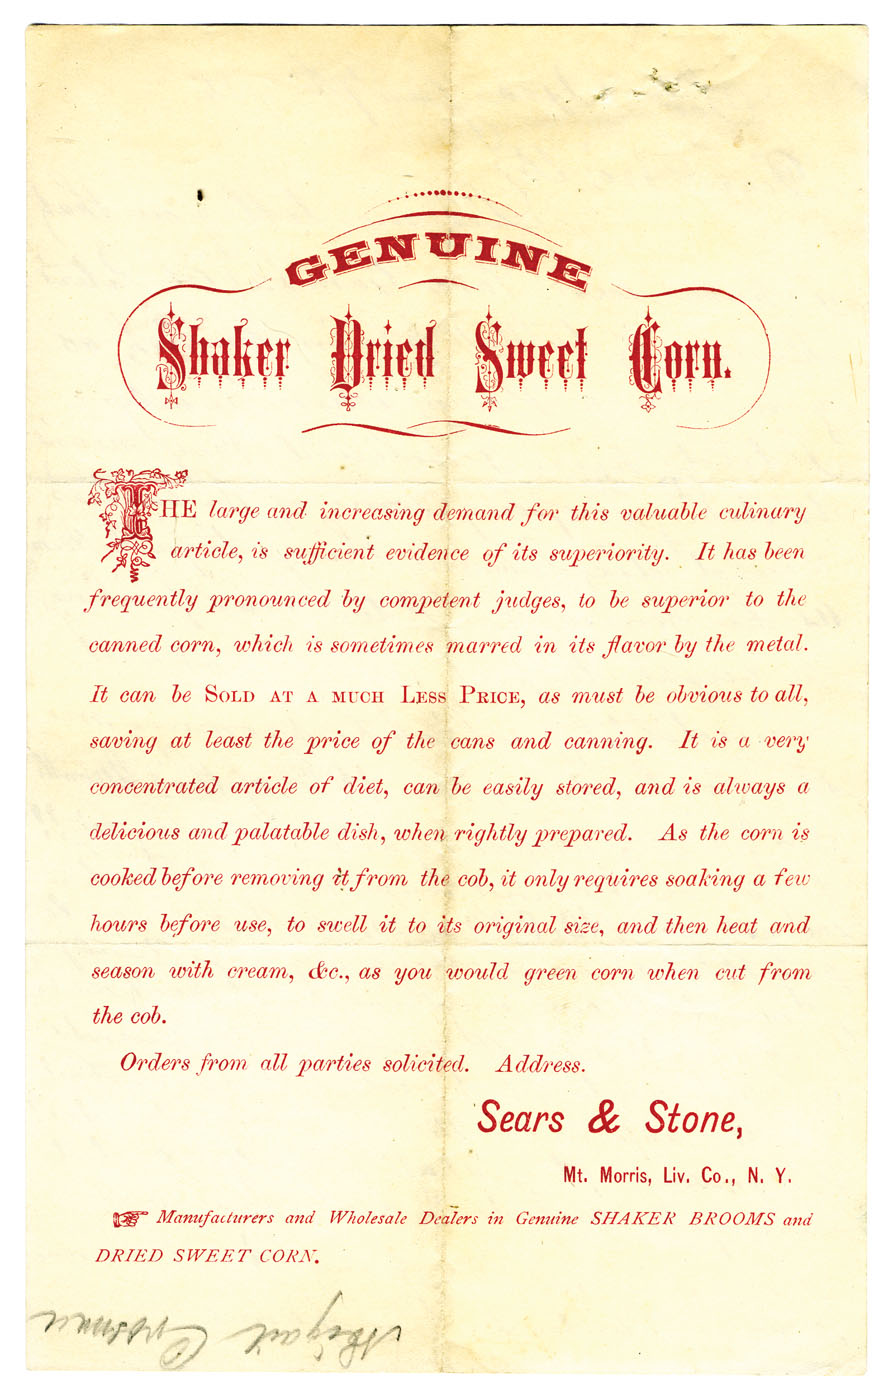 GENUINE
Shaker Dried Sweet Corn.
THE large and increasing demand for this valuable culinary
article, is sufficient evidence of its superiority. It has been
frequently pronounced by competent judges, to be superior to the
canned corn, which is sometimes marred in its flavor by the metal.
It can be SOLD AT A MUCH LESS PRICE, as must be obvious to all,
saving at least the price of the cans and canning. It is a very
concentrated article of diet, can be easily stored, and is always a
delicious and palatable dish, when rightly prepared. As the corn is
cooked before removing it from the cob, it only requires soaking a few
hours before use, to swell it to its original size, and then heat and
season with cream, &c., as you would green corn when cut from
the cob.
Orders from all parties solicited. Address.
Sears & Stone,
Mt. Morris, Liv. Co., N. Y.
☞ Manufacturers and Wholesale Dealers in Genuine SHAKER BROOMS and
DRIED SWEET CORN.
Abigail Crosman